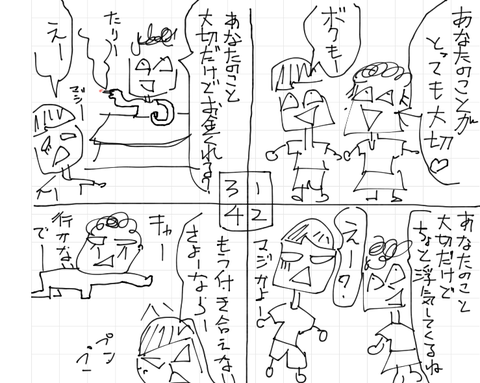 あなたのことが
とっても大切♡
ボクもー
1
あなたのこと
大切だけど
ちょと浮気してくるね
えー?
マジかよー
2
あなたのこと
大切だけどお金くれる?
たりー
えー
マジー
3
もう付き合えない
さよーならー
キャー
行かないでー
ペンペー
4